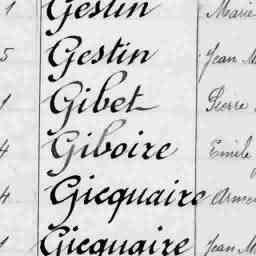 1 Gestin Marie
5 Gestin Jean M
1 Gibet Pierre
4 Giboire Emile
4 Gicquaire Armel
1 Gicquaire Jean M